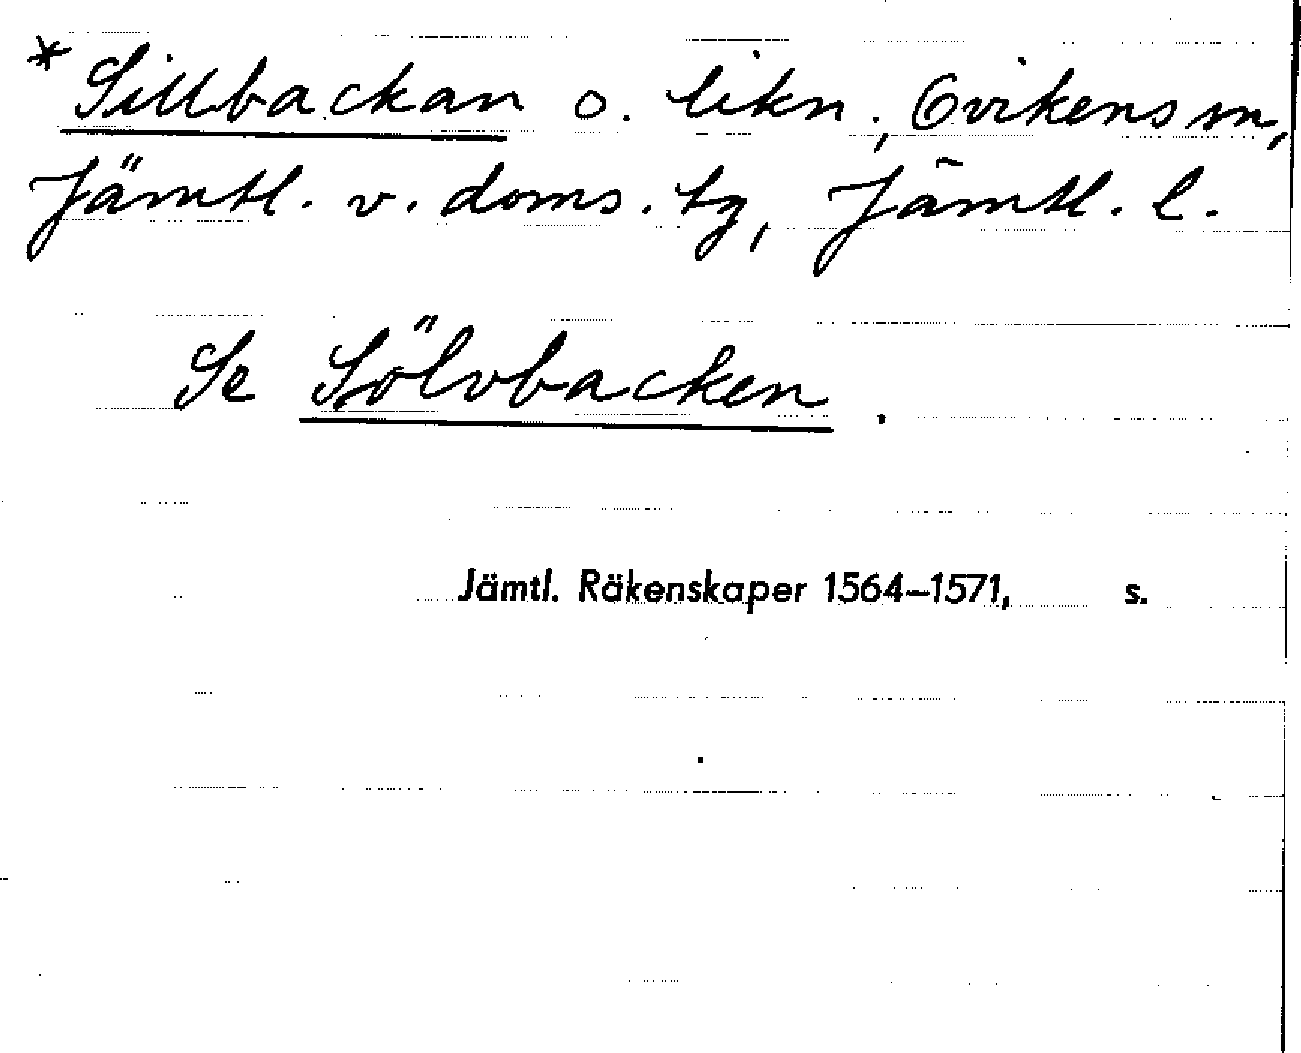 * Sillbackan o. likn., Ovikens sn,
Jämtl. v. doms. tg, Jämtl. l.
Se Sölvbacken.
Jämtl. Räkenskaper 1564–1571, s.